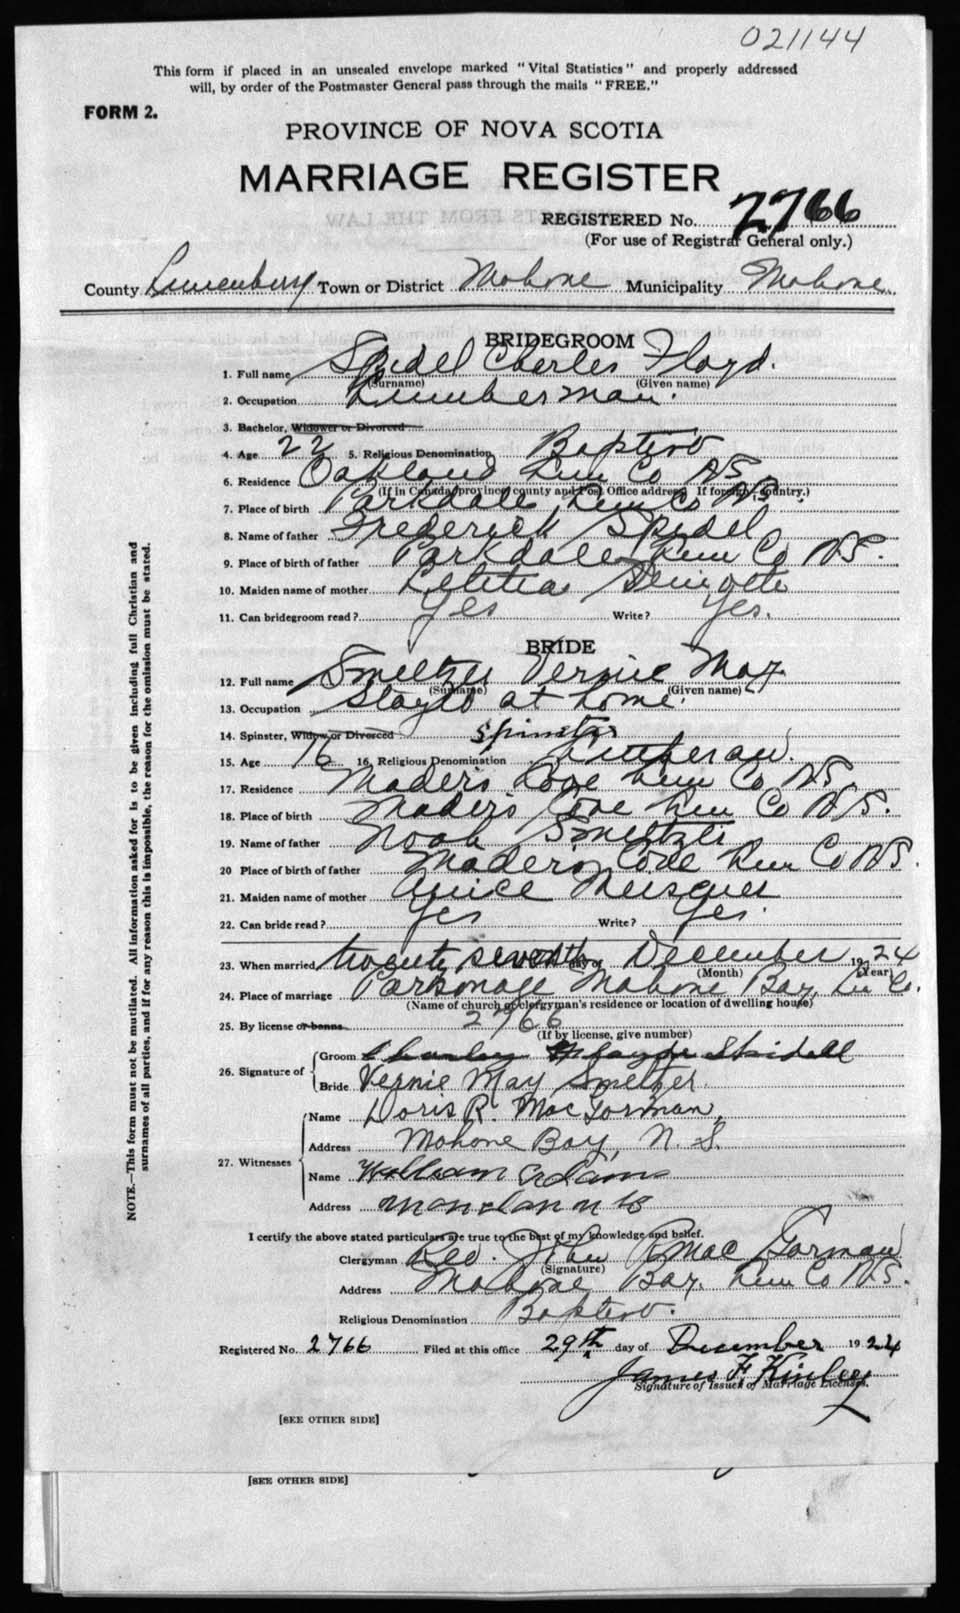 021144
This form if placed in an unsealed envelope marked "Vital Statistics" and properly addressed
will, by order of the Postmaster General pass through the mails "FREE."
FORM 2.
PROVINCE OF NOVA SCOTIA
MARRIAGE REGISTER
REGISTERED No. 2766
(For use of Registrar General only.)
County Lunenburg Town or District Mahone Municipality Mahone
BRIDEGROOM
1. Full name Spidel Charles Floyd.
(Surname) (Given name)
2. Occupation Lumberman.
3. Bachelor, Widower or Divorced
4. Age 22 5. Religious Denomination Baptist
6. Residence Oakland Lun Co NS
(If in Canada, province, county and Post Office address. If foreign, country.)
7. Place of birth Parkdale Lun Co NS.
8. Name of father Frederick Spidel
9. Place of birth of father Parkdale Lun Co NS.
10. Maiden name of mother Letitia
11. Can bridegroom read? Yes Write? Yes.
BRIDE
12. Full name Smeltzer Vernie May
(Surname) (Given name)
13. Occupation Stayed at home.
14. Spinster, Widow or Divorced spinster
15. Age 16 16. Religious Denomination Lutheran.
17. Residence Maders Cove Lun Co NS.
18. Place of birth Maders Cove Lun Co NS.
19. Name of father Noah Smeltzer
20 Place of birth of father Maders Cove Lun Co NS.
21. Maiden name of mother
22. Can bride read? Yes Write? Yes.
23. When married twenty seventh day of December 1924
(Month) (Year)
24. Place of marriage Parsonage Mahone Bay, Lu Co.
(Name of church or clergyman's residence or location of dwelling house)
25. By license or banns 2766
(If by license, give number)
26. Signature of
Groom
Bride Vernie May Smeltzer.
27. Witnesses
Name Doris R. MacGorman,
Address Mahone Bay, N. S.
Name William Adams
Address
I certify the above stated particulars are true to the best of my knowledge and belief.
Clergyman Rev. John R MacGorman
(Signature)
Address Mahone Bay. Lun Co NS.
Religious Denomination Baptist.
Registered No. 2766 Filed at this office 29th day of December 1924
James F Kinley
Signature of Issuer of Marriage Licenses.
[SEE OTHER SIDE]
[SEE OTHER SIDE]
NOTE.—This form must not be mutilated. All information asked for is to be given including full Christian and
surnames of all parties, and if for any reason this is impossible, the reason for the omission must be stated.